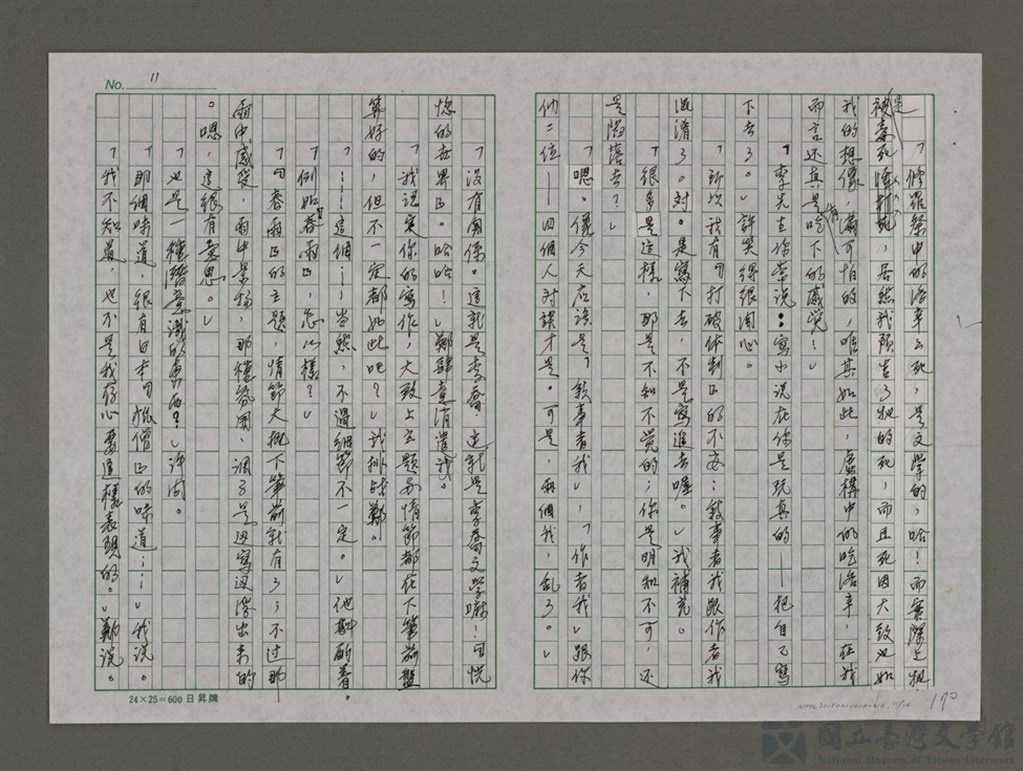 No. 11
「修羅祭中的浩辛之死,是文學的,哈!而實際上牠
是被毒死,居然我預告了牠的死,而且死因大致也如
我的想像,滿可怕的,唯其如此,虛構中的吃浩辛,在我
而言還真有吃下的感覺!」
「李先生你常說:寫小說在你是玩真的——把自己寫
下去了。」許笑得很開心。
「所以我有『打破体制』的不安:敘事者我跟作者我
混淆了。對。是寫下去,不是寫進去喔。」我補充。
「很多是這樣,那是不知不覺的;你是明知不可,還
是陷落去?」
「嗯。儀今天应該是『敘事者我』,『作者我』跟你
們二位——四個人對談才是。可是,兩個我,乱了。」
「沒有関係。這就是李喬,這就是李喬文学嘛!『恍
惚的世界』。哈哈!」鄭肆意消遣我。
「我說寫你的寫作,大致上主題与情節都在下筆前盤
算好的,但不一定都如此吧?」許挑战鄭。
「……這個……,当然,不過細節不一定。」他斟酌着。
「例如『春雨』,怎么樣?」
「『春雨』的主題,情節大概下筆前就有了;不过那
雨中感受,雨中景物,那種氛圍,調子是边寫边浮出來的
。嗯,這很有意思。」
「也是一種潛意識的東西?」許問。
「那個味道,很有日本『孤僧』的味道……」我說。
「我不知道,也不是我存心要這樣表現的。」鄭說。
24×25=600 日昇牌
170
國立臺灣文學館
National Museum of Taiwan Literature